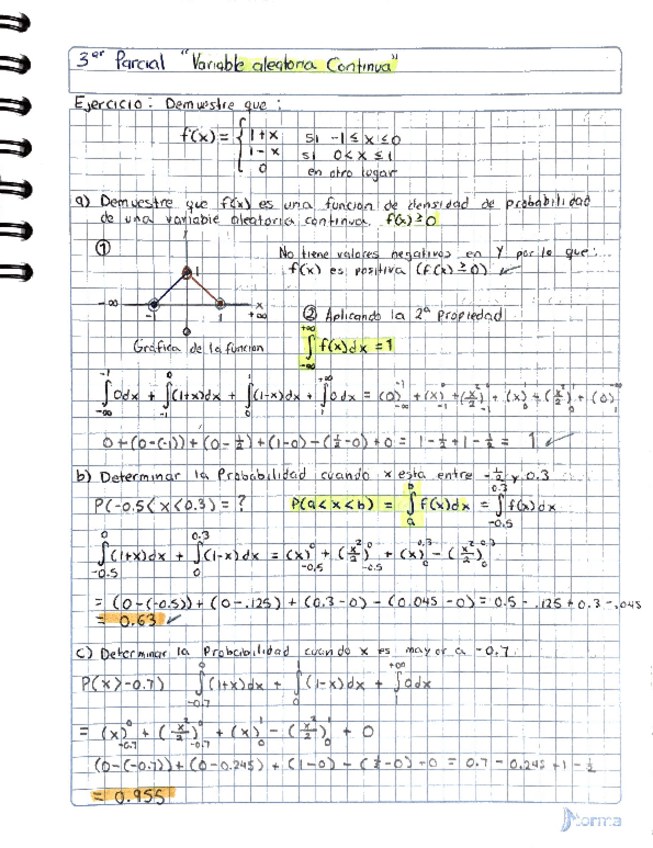 3er Parcial "Variable aleatoria Continua"
Ejercicio: Demuestre que:
f(x) = { 1+x si -1 ≤ x ≤ 0
1-x si 0 < x ≤ 1
0 en otro lugar
a) Demuestre que f(x) es una funcion de densidad de probabilidad
de una variable aleatoria continua. f(x) ≥ 0
①
No tiene valores negativos en Y por lo que:
f(x) es positiva (f(x) ≥ 0) ✓
1
-∞ -1 1 x +∞
Grafica de la funcion
② Aplicando la 2ª Propiedad
∫_{-∞}^{+∞} f(x)dx = 1
∫_{-∞}^{-1} 0dx + ∫_{-1}^{0} (1+x)dx + ∫_{0}^{1} (1-x)dx + ∫_{1}^{+∞} 0dx = (0)_{-∞}^{-1} + (x)_{-1}^{0} + (x²/2)_{-1}^{0} + (x)_{0}^{1} - (x²/2)_{0}^{1} + (0)_{1}^{+∞}
0 + (0-(-1)) + (0-½) + (1-0) - (½-0) + 0 = 1-½+1-½ = 1 ✓
b) Determinar la Probabilidad cuando x esta entre -½ y 0.3
P(-0.5 < x < 0.3) = ? P(a < x < b) = ∫_{a}^{b} f(x)dx = ∫_{-0.5}^{0.3} f(x)dx
∫_{-0.5}^{0} (1+x)dx + ∫_{0}^{0.3} (1-x)dx = (x)_{-0.5}^{0} + (x²/2)_{-0.5}^{0} + (x)_{0}^{0.3} - (x²/2)_{0}^{0.3}
= (0-(-0.5)) + (0-.125) + (0.3-0) - (0.045-0) = 0.5 - .125 + 0.3 - .045
= 0.63 ✓
c) Determinar la Probabilidad cuando x es mayor a -0.7.
P(x>-0.7) ∫_{-0.7}^{0} (1+x)dx + ∫_{0}^{1} (1-x)dx + ∫_{1}^{+∞} 0dx
= (x)_{-0.7}^{0} + (x²/2)_{-0.7}^{0} + (x)_{0}^{1} - (x²/2)_{0}^{1} + 0
(0-(-0.7)) + (0-0.245) + (1-0) - (½-0) + 0 = 0.7 - 0.245 + 1 - ½
= 0.955
Norma